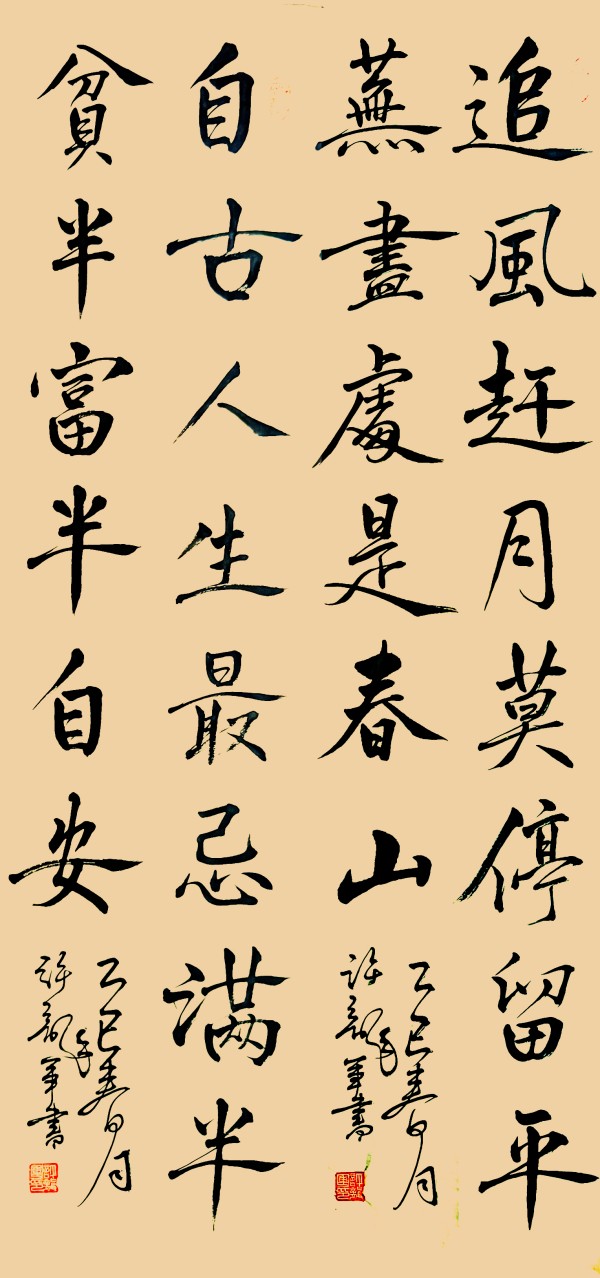 追風赶月莫停留平
蕪盡處是春山
乙巳年春月
許龍軍書
自古人生最忌满半
貧半富半自安
乙巳年春月
許龍軍書